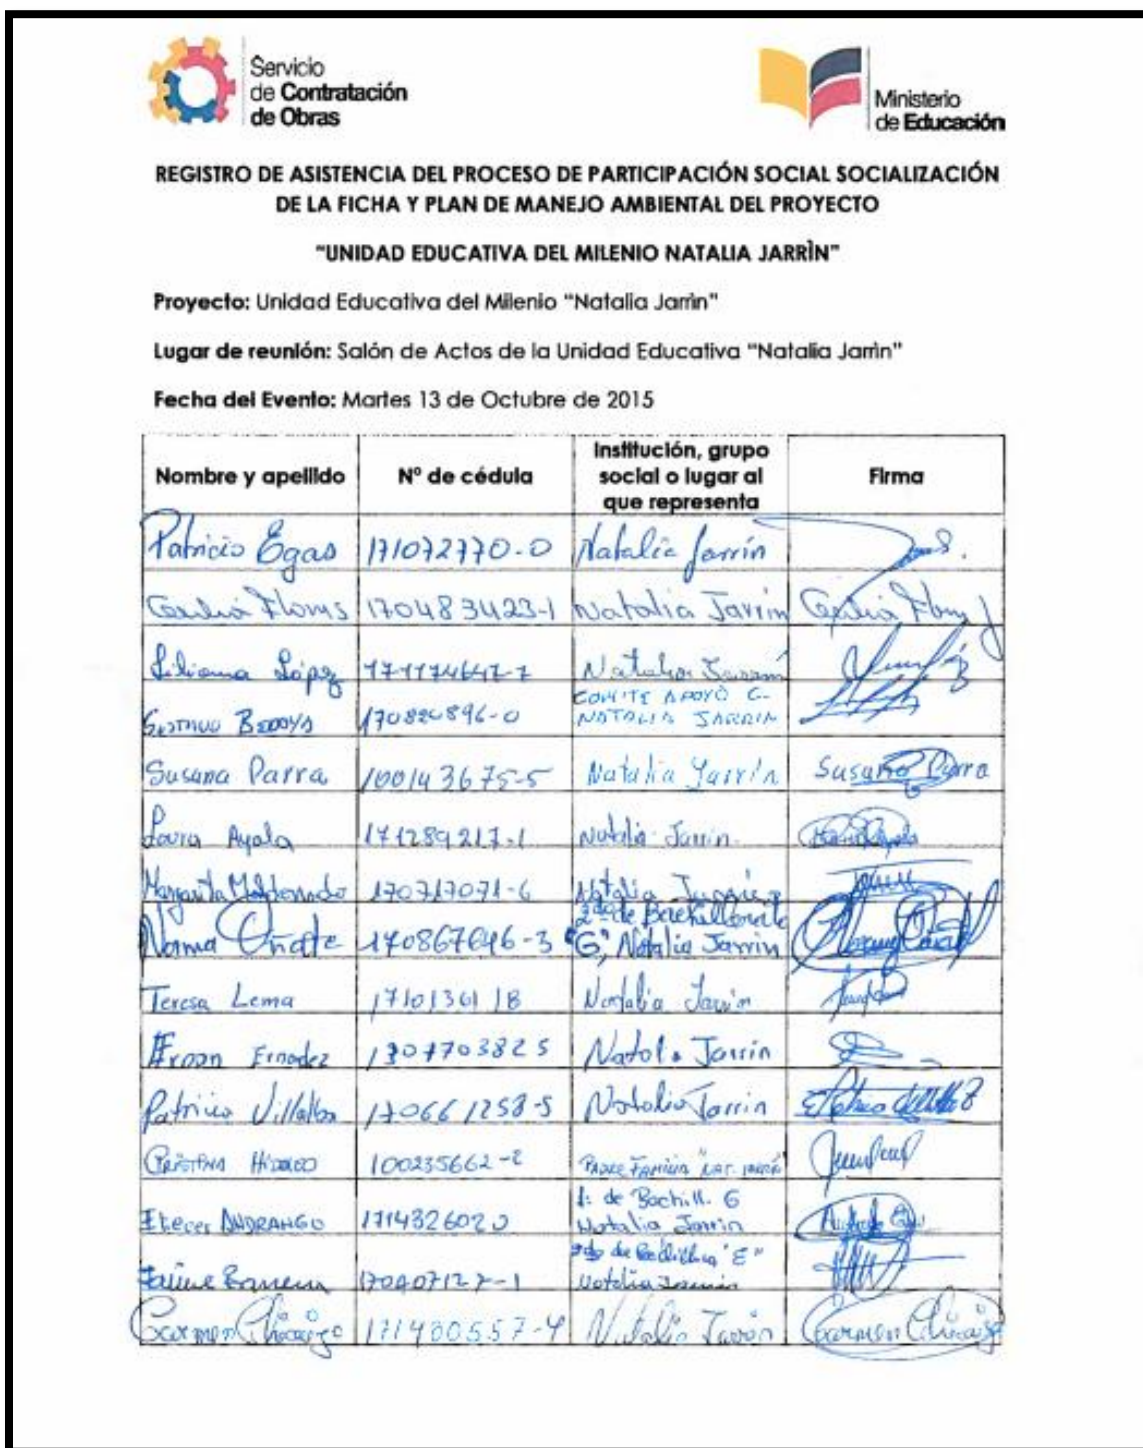 Servicio
de Contratación
de Obras
Ministerio
de Educación
REGISTRO DE ASISTENCIA DEL PROCESO DE PARTICIPACIÓN SOCIAL SOCIALIZACIÓN
DE LA FICHA Y PLAN DE MANEJO AMBIENTAL DEL PROYECTO
"UNIDAD EDUCATIVA DEL MILENIO NATALIA JARRÌN"
Proyecto: Unidad Educativa del Milenio "Natalia Jarrìn"
Lugar de reunión: Salón de Actos de la Unidad Educativa "Natalia Jarrìn"
Fecha del Evento: Martes 13 de Octubre de 2015
Nombre y apellido Nº de cédula Institución, grupo social o lugar al que representa Firma
Patricio Egas 171072770-0 Natalia Jarrín
Flores 170483423-1 Natalia Jarrín
Liliana López Natalia
BEDOYA 170820896-0 COMITE APOYO G. NATALIA JARRIN
Susana Parra 100143675-5 Natalia Jarrín Susana Parra
Laura Ayala 171289217-1 Natalia Jarrin
Margarita Maldonado 170717071-6 Natalia
Norma Oñate 170867646-3 2do de Bachillerato "G", Natalia Jarrin
Teresa Lema 1710136118 Natalia Jarrin
Ernadez Jarrin
Patricio Villalba 170661258-5 Natalia Jarrin
CRISTINA HIDALGO 100235662-2 PADRE FAMILIA
ANDRANGO 1714326020 1: de Bachill. G Natalia Jarrin
Jaime "E" Natalia
Carmen Chicaiza 171400557-4 Natalia Jarrín Carmen Chicaiza